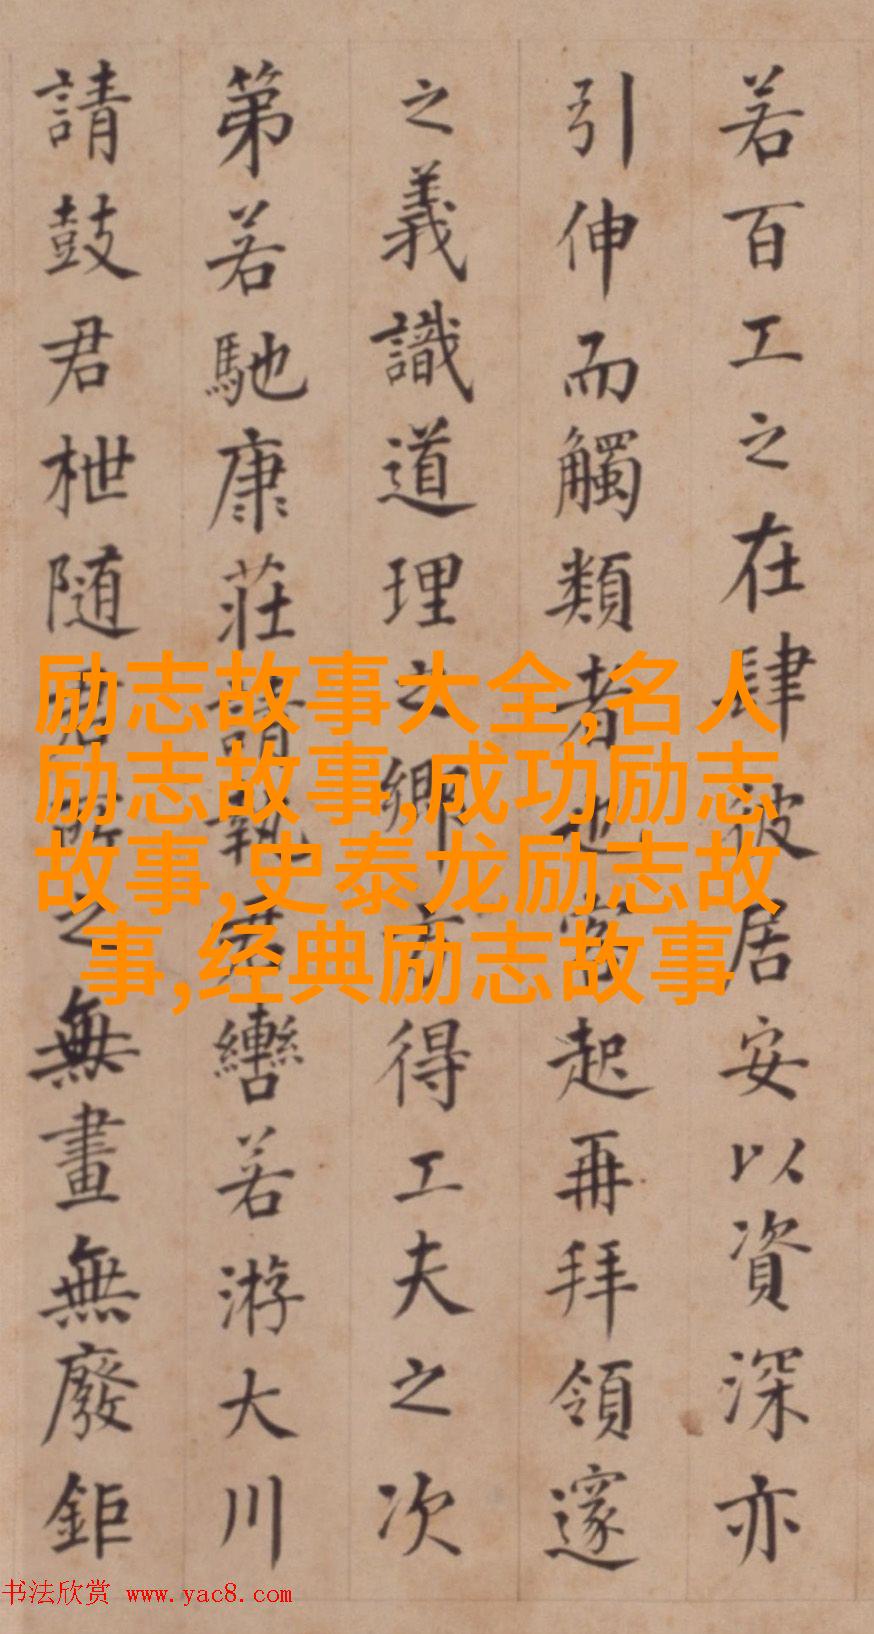 若百工之在肆彼居安以資深亦
引伸而觸類者也當起再拜領邃
之義識道理之鄉方得工夫之次
第若馳康莊請執君轡若游大川
請鼓君枻隨君之無畫無廢鉅
励志故事大全,名人
励志故事,成功励志
故事,史泰龙励志故
事,经典励志故事
书法欣赏 www.yac8.com